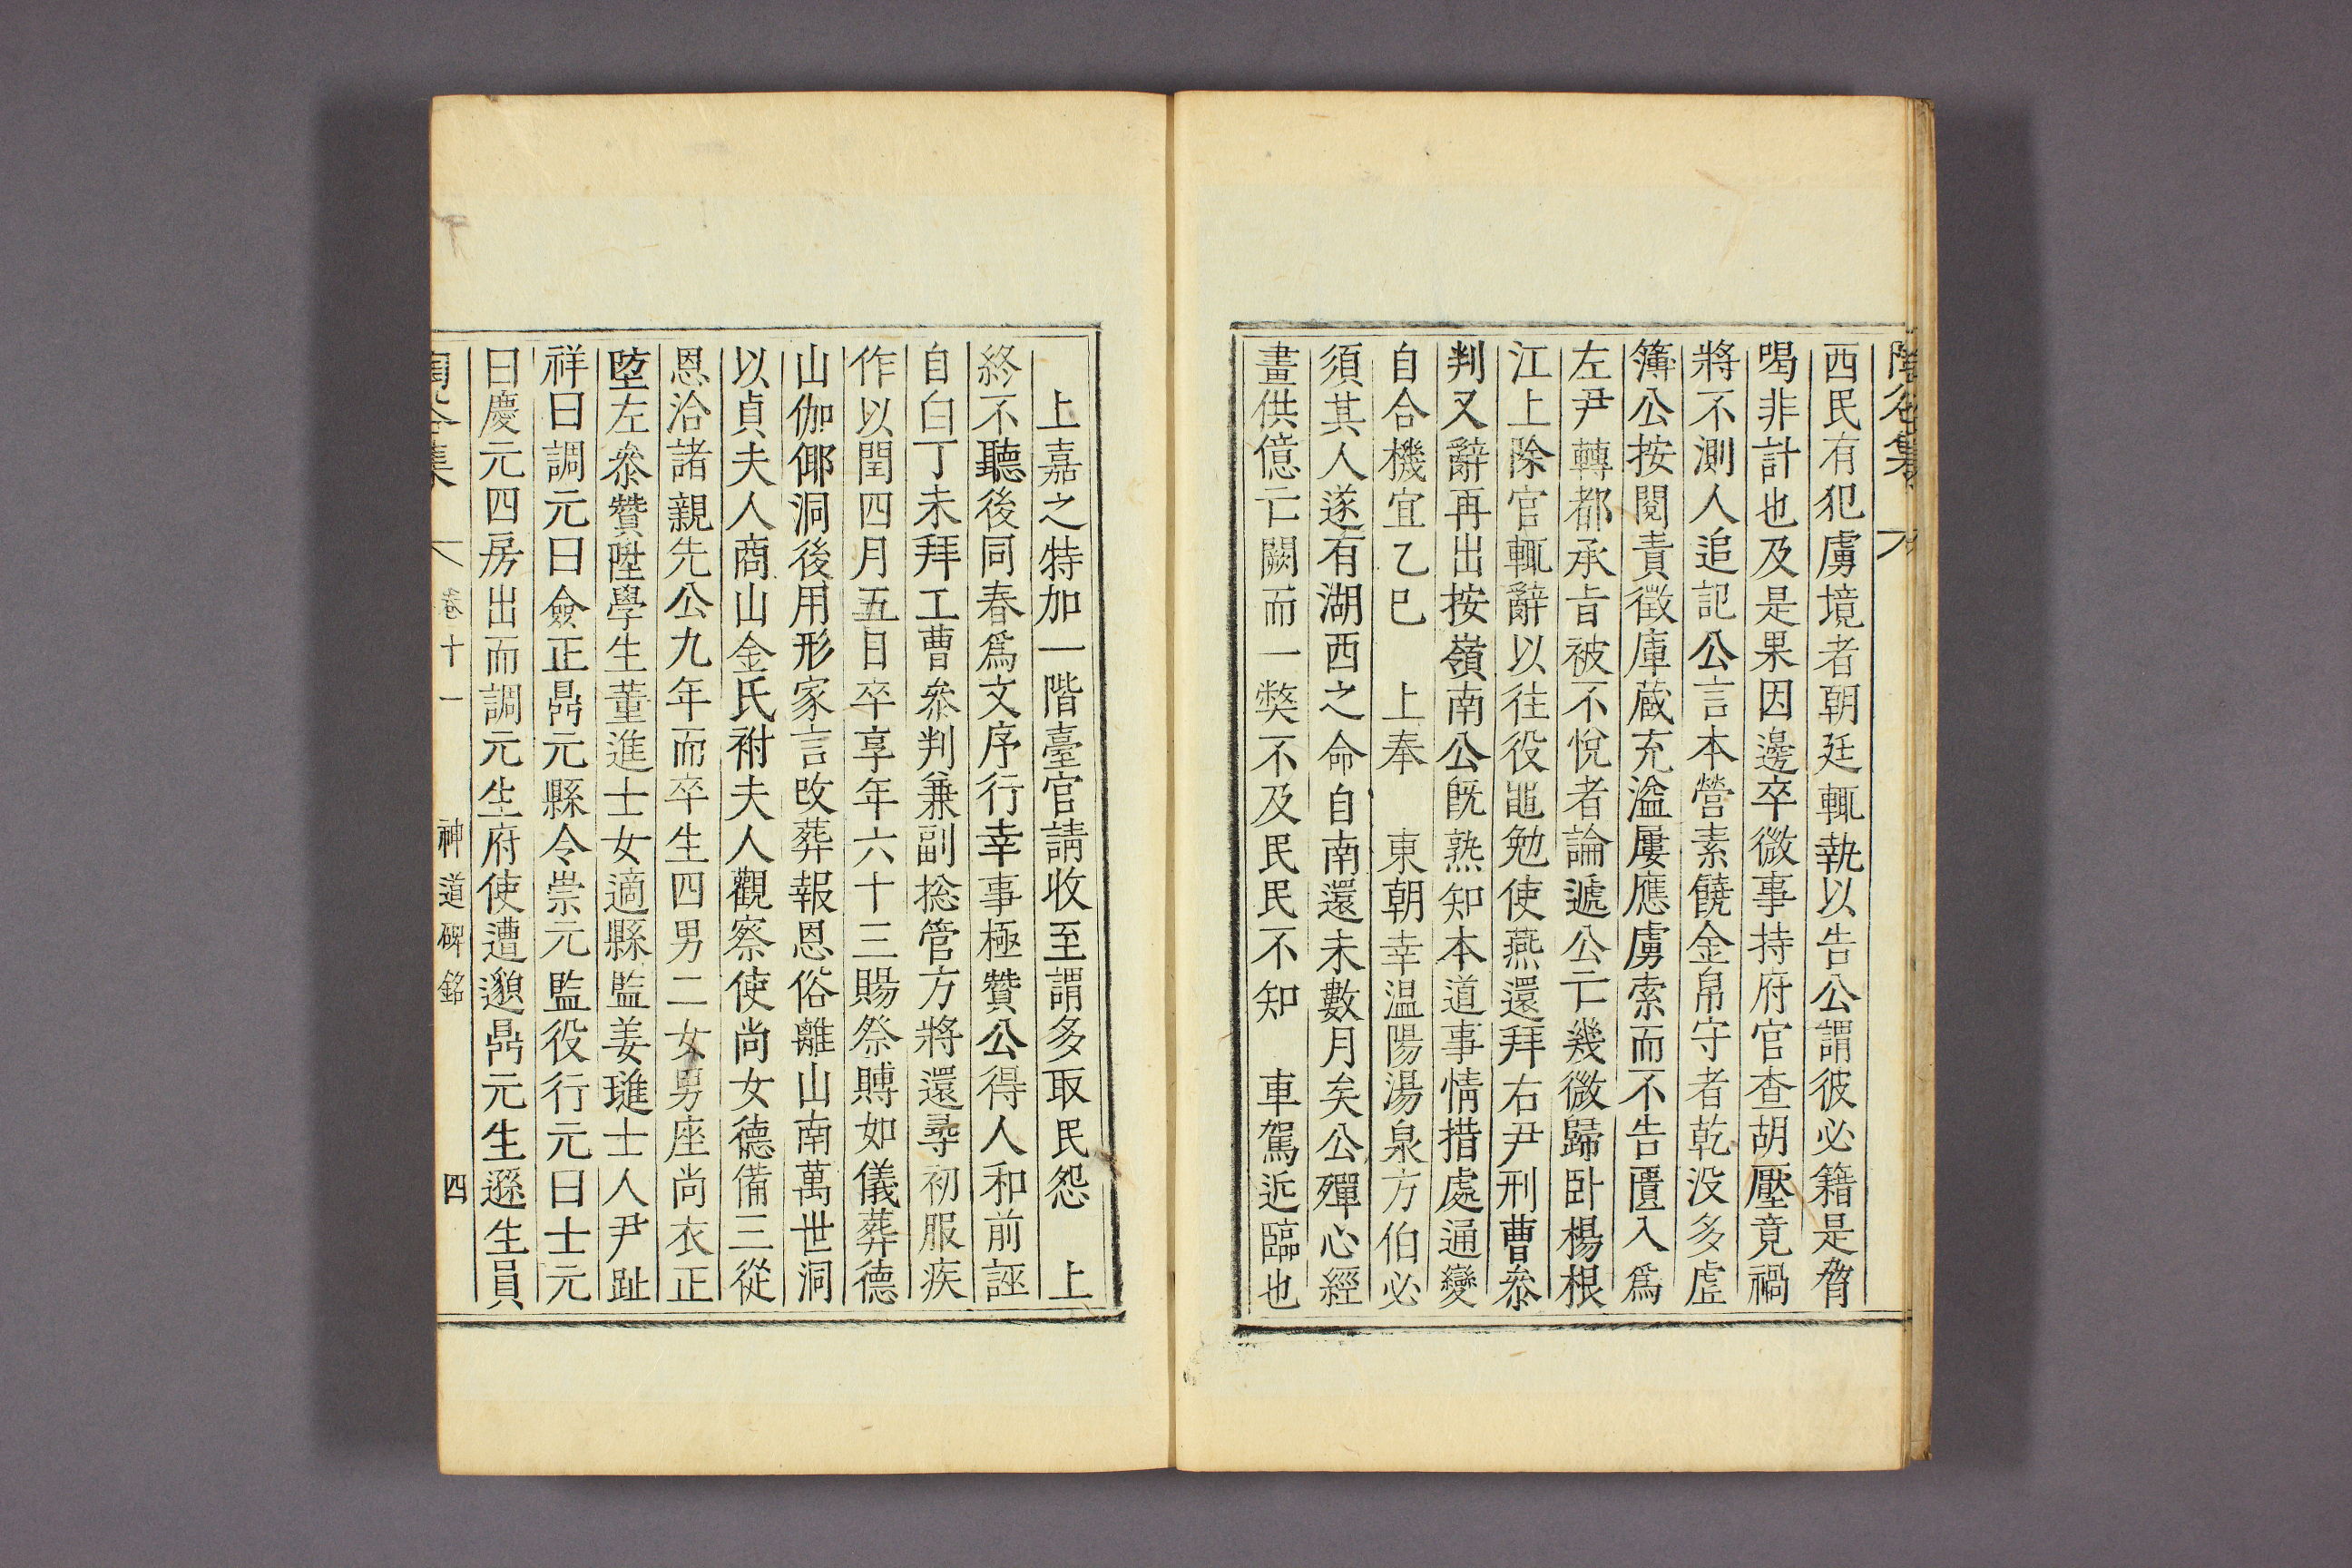 西民有犯虜境者朝廷輒執以告公謂彼必籍是脅
喝非計也及是果因邊卒微事持府官查胡壓竟禍
將不測人追記公言本營素饒金帛守者乾没多虗
簿公按閱責徵庫蔵充溢屢應虜索而不告匱入爲
左尹轉都承旨被不悅者論遞公亡幾微歸卧楊根
江上除官輒辭以往役黽勉使燕還拜右尹刑曹叅
判又辭再出按嶺南公旣熟知本道事情措處通變
自合機宜乙巳　上奉　東朝幸温陽湯泉方伯必
須其人遂有湖西之命自南還未數月矣公殫心經
畫供億亡闕而一獘不及民民不知　車駕近臨也
上嘉之特加一階臺官請收至謂多取民怨　上
終不聽後同春爲文序行幸事極贊公得人和前誣
自白丁未拜工曹叅判兼副捴管方將還尋初服疾
作以閏四月五日卒享年六十三賜祭賻如儀葬德
山伽倻洞後用形家言改葬報恩俗離山南萬世洞
以貞夫人商山金氏祔夫人觀察使尚女德備三從
恩洽諸親先公九年而卒生四男二女男座尚衣正
堕左叅贊陞學生董進士女適縣監姜璡士人尹趾
祥曰調元曰僉正鼎元縣令崇元監役行元曰士元
曰慶元四房出而調元生府使遭邈鼎元生遜生員
陶谷集
卷十一
神道碑銘
四